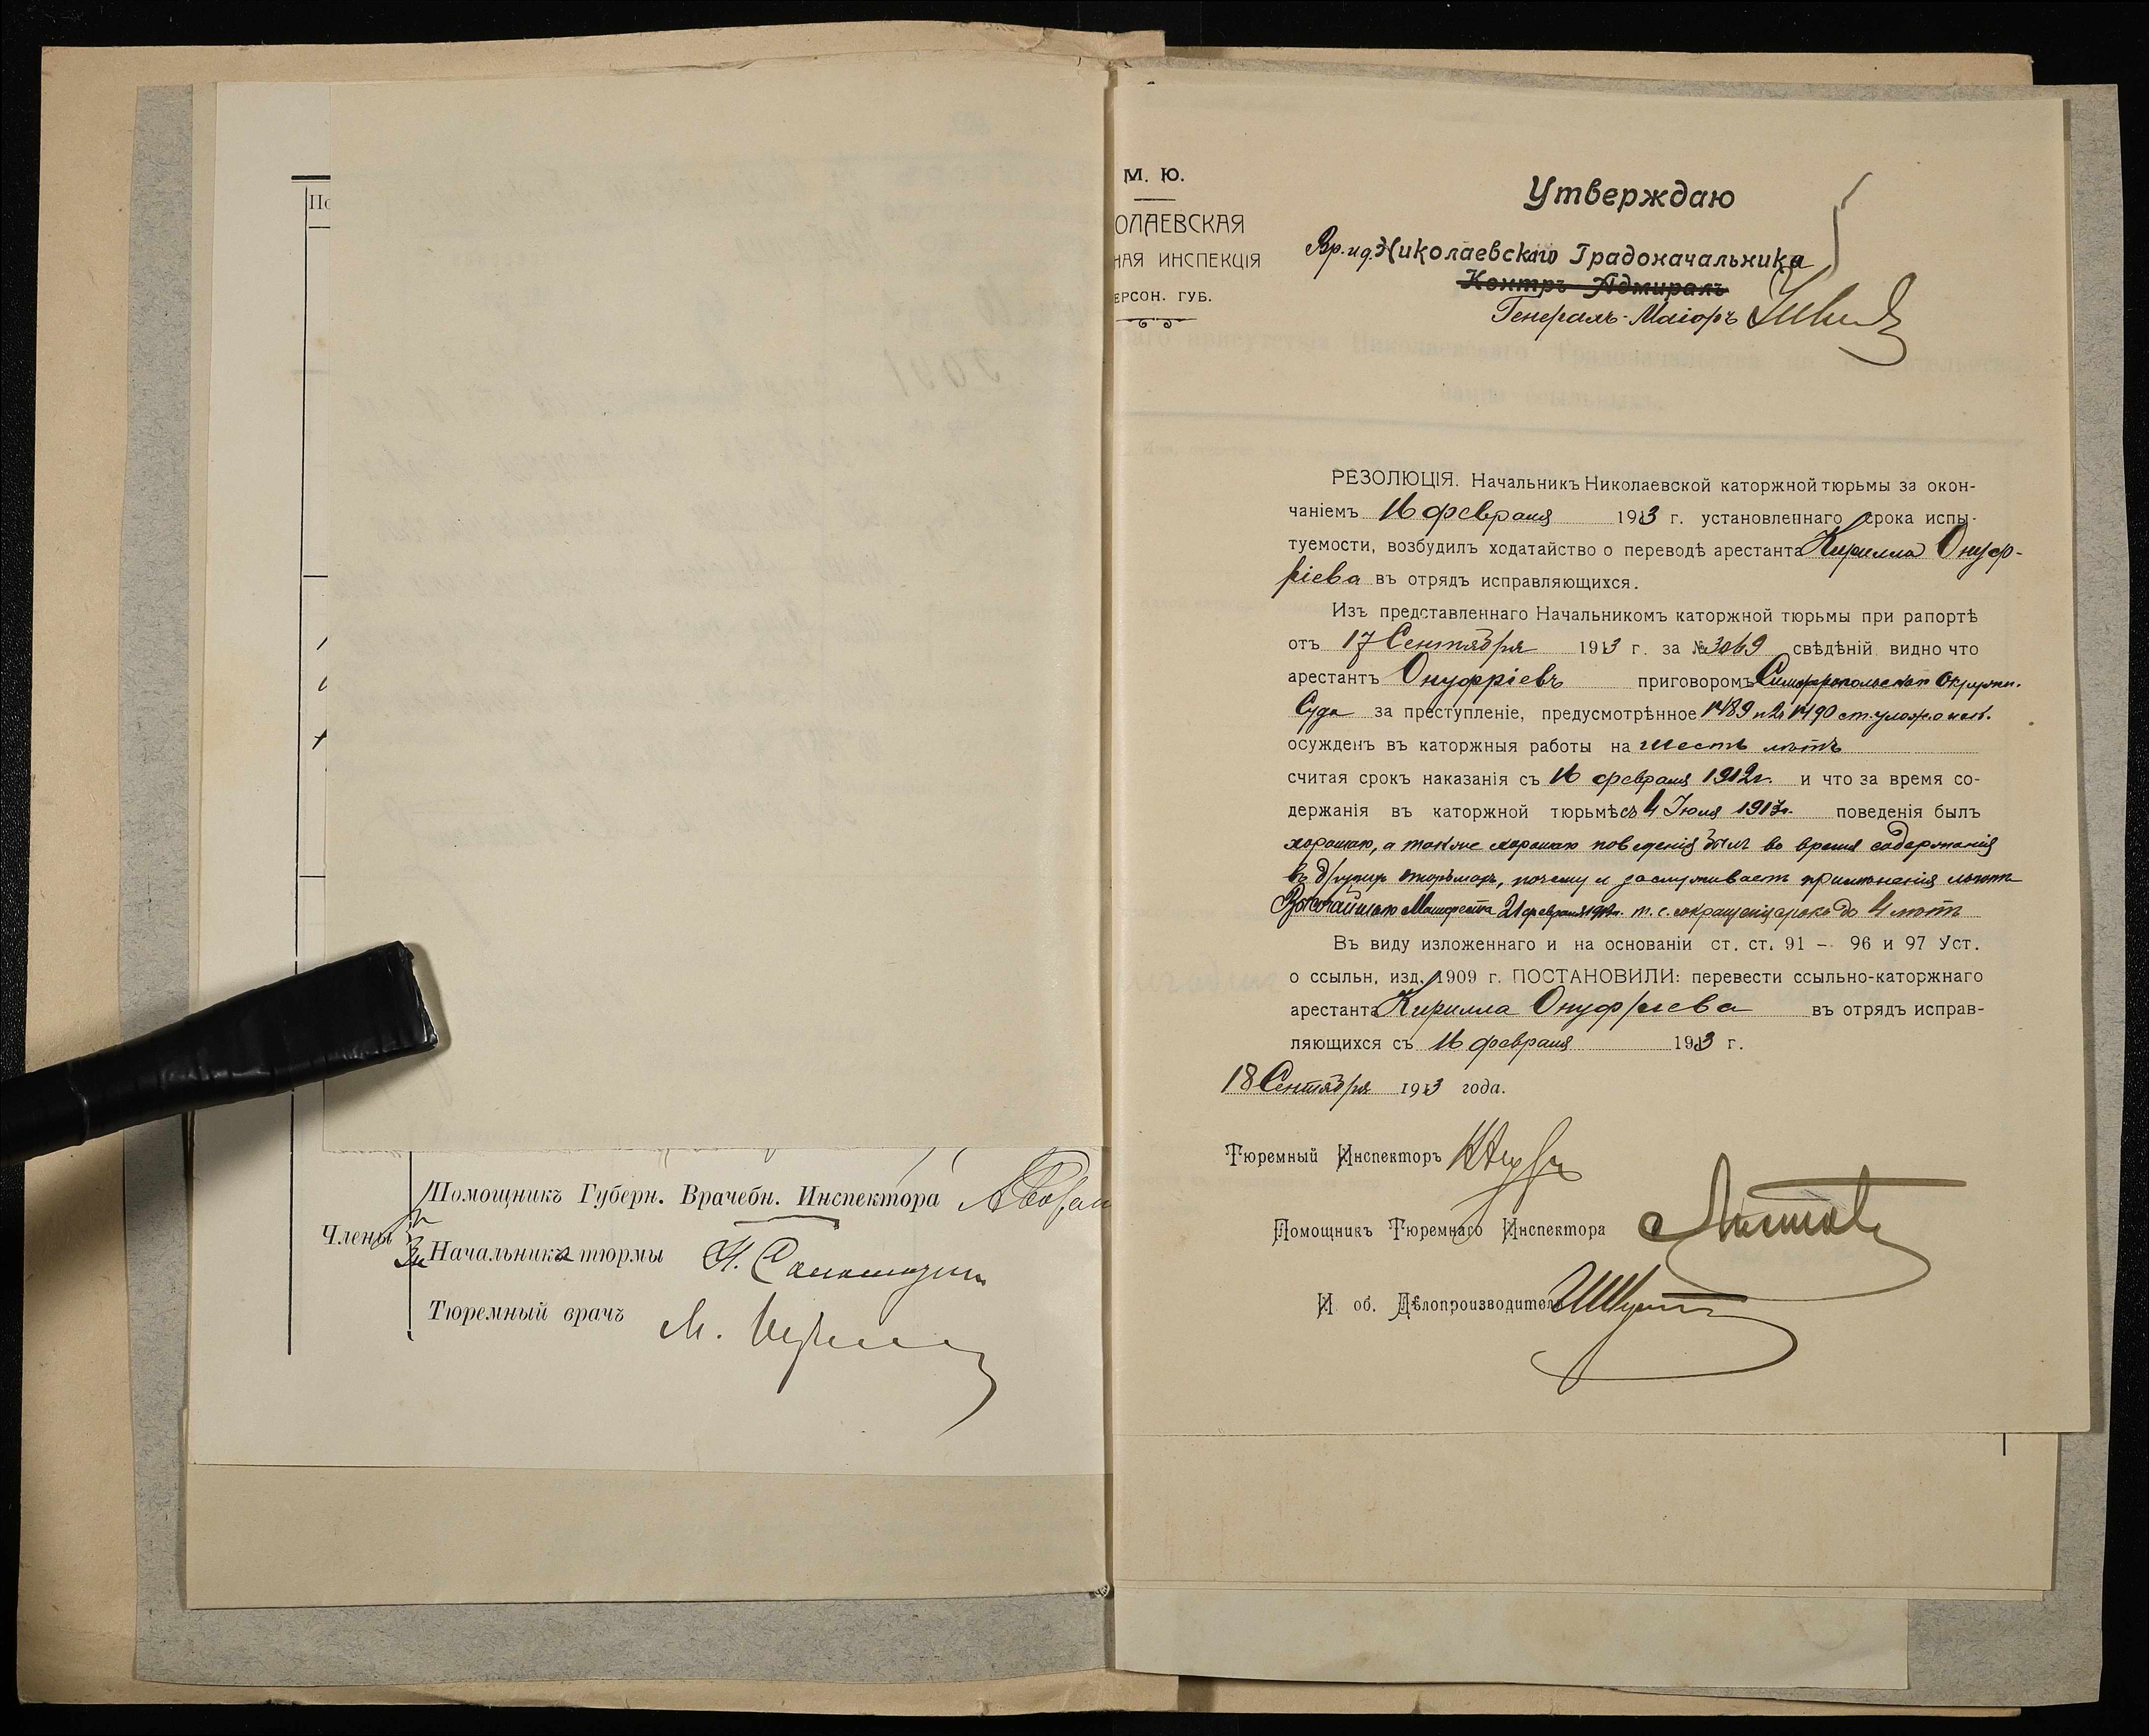 По
Помощникъ Губерн. Врачебн. Инспектора
Члены
Начальника тюрмы
Тюремный врачъ
М. Ю.
ОЛАЕВСКАЯ
НАЯ ИНСПЕКЦІЯ
ЕРСОН. ГУБ.
Утверждаю
Вр. и д. Николаевскаго Градоначальника
Контръ Адмиралъ
Генералъ-Маіоръ
РЕЗОЛЮЦІЯ. Начальникъ Николаевской каторжной тюрьмы за окон-
чаніемъ 16 февраля 1913 г. установленнаго срока испы-
туемости, возбудилъ ходатайство о переводѣ арестанта Кирилла Онуф-
ріева въ отрядъ исправляющихся.
Изъ представленнаго Начальникомъ каторжной тюрьмы при рапортѣ
отъ 17 Сентября 1913 г. за № 3069 свѣдѣній видно что
арестантъ Онуфріевъ приговоромъ Симферопольскаго Окружн.
Суда за преступленіе, предусмотрѣнное 1489 и 2 ч 1490 ст. улож. о нак.
осужденъ въ каторжныя работы на шесть лѣтъ
считая срокъ наказанія съ 16 февраля 1912 г. и что за время со-
держанія въ каторжной тюрьмѣ съ 4 Іюля 1913 г. поведенія былъ
хорошаго, а также хорошаго поведенія былъ во время содержанія
въ другихъ тюрьмахъ, почему и заслуживаетъ примѣненія льготъ
Высочайшаго Манифеста 21 февраля 1913 г. т. е. сокращенія срока до 4 лѣтъ
Въ виду изложеннаго и на основаніи ст. ст. 91 - 96 и 97 Уст.
о ссыльн, изд. 1909 г. ПОСТАНОВИЛИ: перевести ссыльно-каторжнаго
арестанта Кирилла Онуфріева въ отрядъ исправ-
ляющихся съ 16 февраля 1913 г.
18 Сентября 1913 года.
Тюремный Инспекторъ
Помощникъ Тюремнаго Инспектора
И об. Дѣлопроизводителя